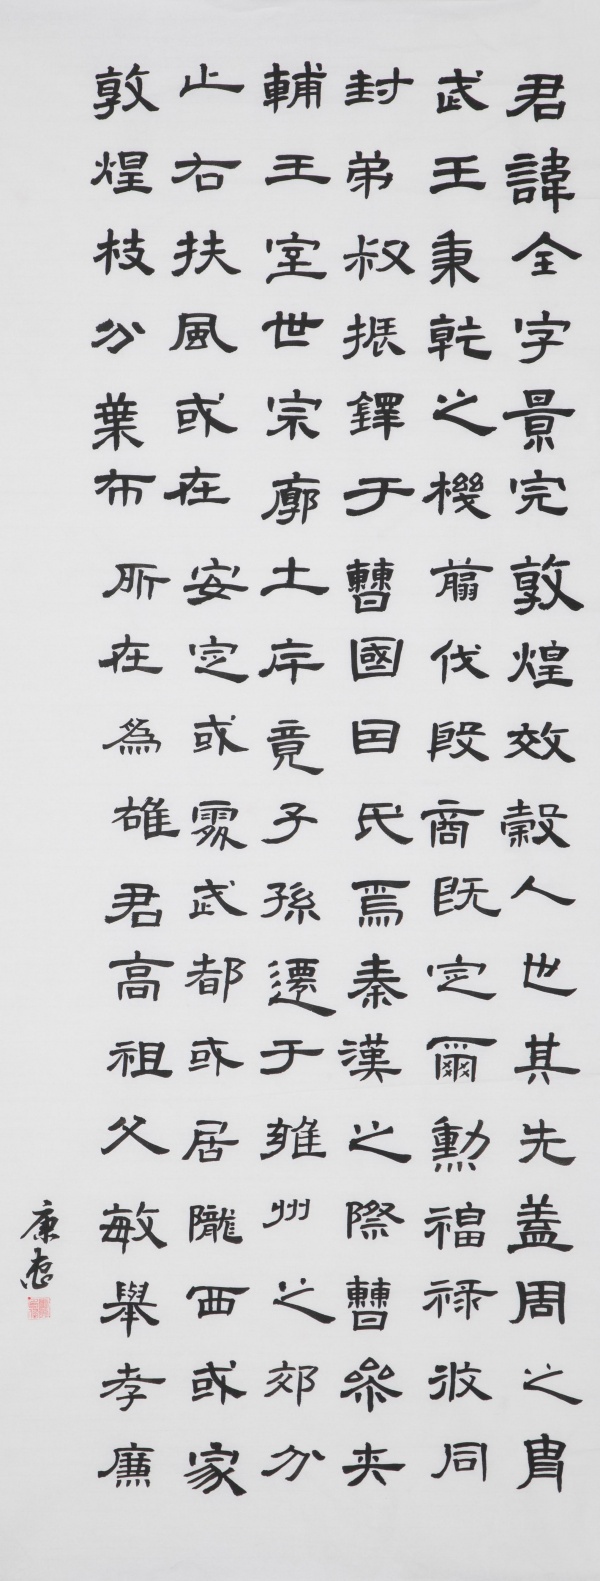 君諱全字景完敦煌效穀人也其先蓋周之胄
武王秉乾之機翦伐殷商既定爾勳福祿攸同
封弟叔振鐸于曹國因氏焉秦漢之際曹參夾
輔王室世宗廓土斥竟子孫遷于雍州之郊分
止右扶風或在安定或處武都或居隴西或家
敦煌枝分葉布所在為雄君高祖父敏舉孝廉